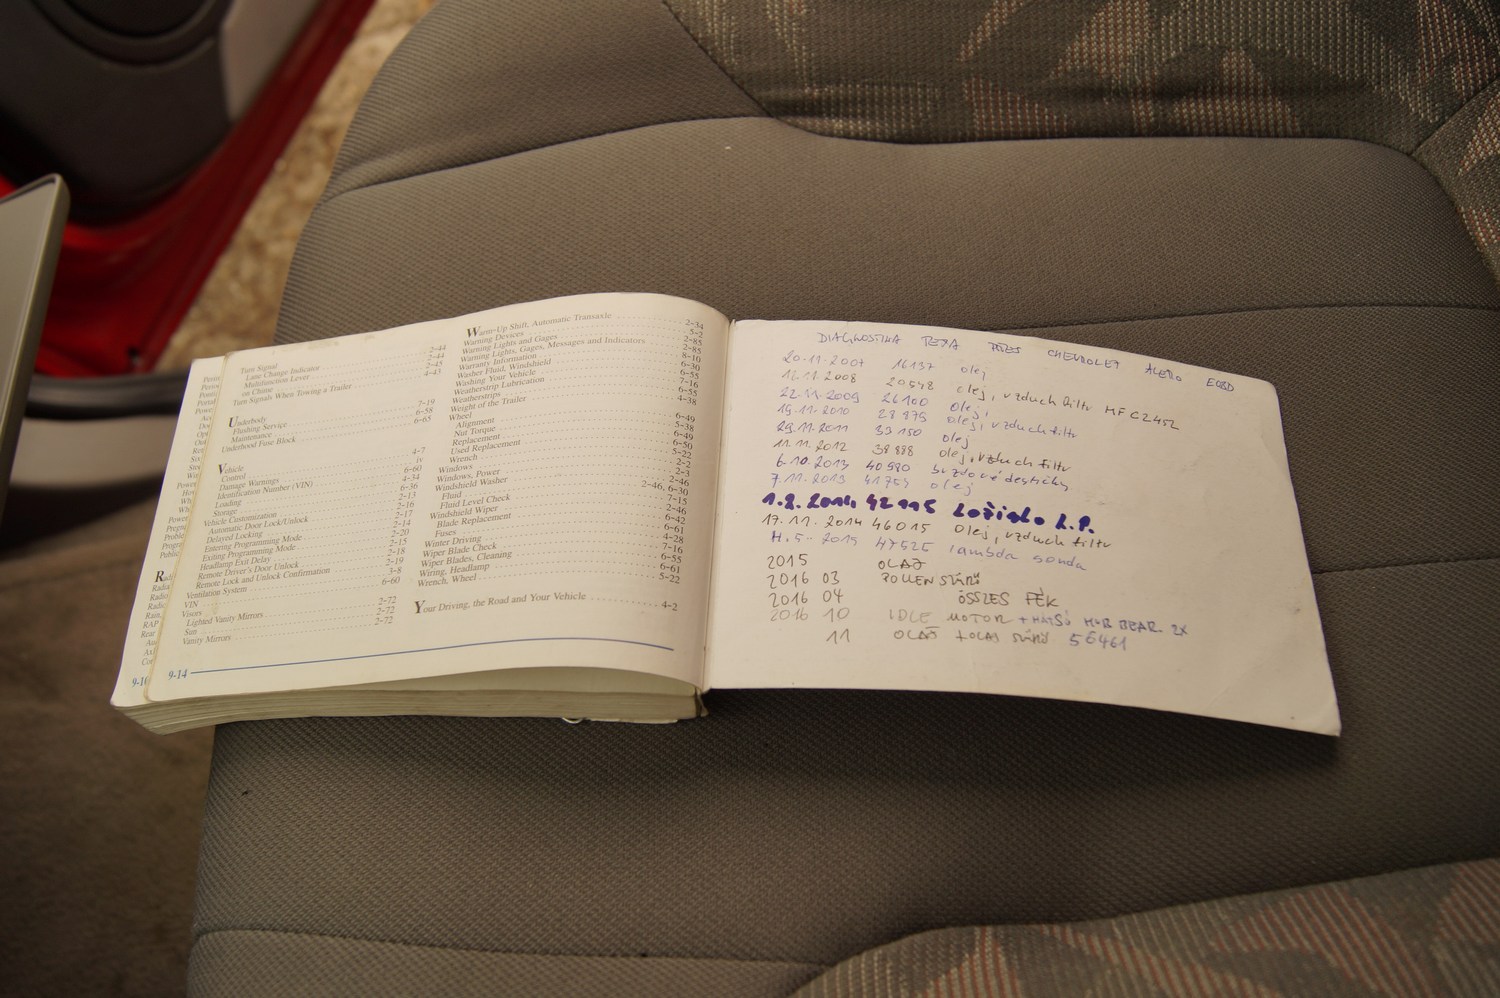 Turn Signal
Lane Change Indicator 2-44
Multifunction Lever 2-44
on Chime 2-45
Turn Signals When Towing a Trailer 4-43
Underbody
Flushing Service 7-19
Maintenance 6-58
Underhood Fuse Block 6-65
Vehicle
Control 4-7
Damage Warnings iv
Identification Number (VIN) 6-60
Loading 4-34
Storage 6-36
Vehicle Customization 2-13
Automatic Door Lock/Unlock 2-16
Delayed Locking 2-17
Entering Programming Mode 2-14
Exiting Programming Mode 2-20
Headlamp Exit Delay 2-15
Remote Driver's Door Unlock 2-18
Remote Lock and Unlock Confirmation 2-19
Ventilation System 3-8
VIN 6-60
Visors
Lighted Vanity Mirrors 2-72
Sun 2-72
Vanity Mirrors 2-72
9-14
Warm-Up Shift, Automatic Transaxle 2-34
Warning Devices 5-2
Warning Lights and Gages 2-85
Warning Lights, Gages, Messages and Indicators 2-85
Warranty Information 8-10
Washer Fluid, Windshield 6-30
Washing Your Vehicle 6-55
Weatherstrip Lubrication 7-16
Weatherstrips 6-55
Weight of the Trailer 4-38
Wheel
Alignment 6-49
Nut Torque 5-38
Replacement 6-49
Used Replacement 6-50
Wrench 5-22
Windows 2-2
Windows, Power 2-3
Windshield Washer 2-46
Fluid 2-46, 6-30
Fluid Level Check 7-15
Windshield Wiper 2-46
Blade Replacement 6-42
Fuses 6-61
Winter Driving 4-28
Wiper Blade Check 7-16
Wiper Blades, Cleaning 6-55
Wiring, Headlamp 6-61
Wrench, Wheel 5-22
Your Driving, the Road and Your Vehicle 4-2
DIAGNOSTIKA CHEVROLET ALERO EOBD
20.11.2007 16137 olej
16.11.2008 20548 olej, vzduch filtr MFCZ452
22.11.2009 26100 olej,
19.11.2010 28879 olej, vzduch filtr
29.11.2011 33150 olej
11.11.2012 38888 olej, vzduch filtr
6.10.2013 40980 brzdové destičky
7.11.2013 41759 olej
1.2.2014 42115 Ložisko L.P.
17.11.2014 46015 Olej, vzduch filtr
2015 47525 lambda sonda
2015 OLAJ
2016 03 POLLENSZŰRŐ
2016 04 ÖSSZES FÉK
2016 10 IDLE MOTOR + HÁTSÓ HUB BEAR. 2X
11 OLAJ + OLAJ SZŰRŐ 56461